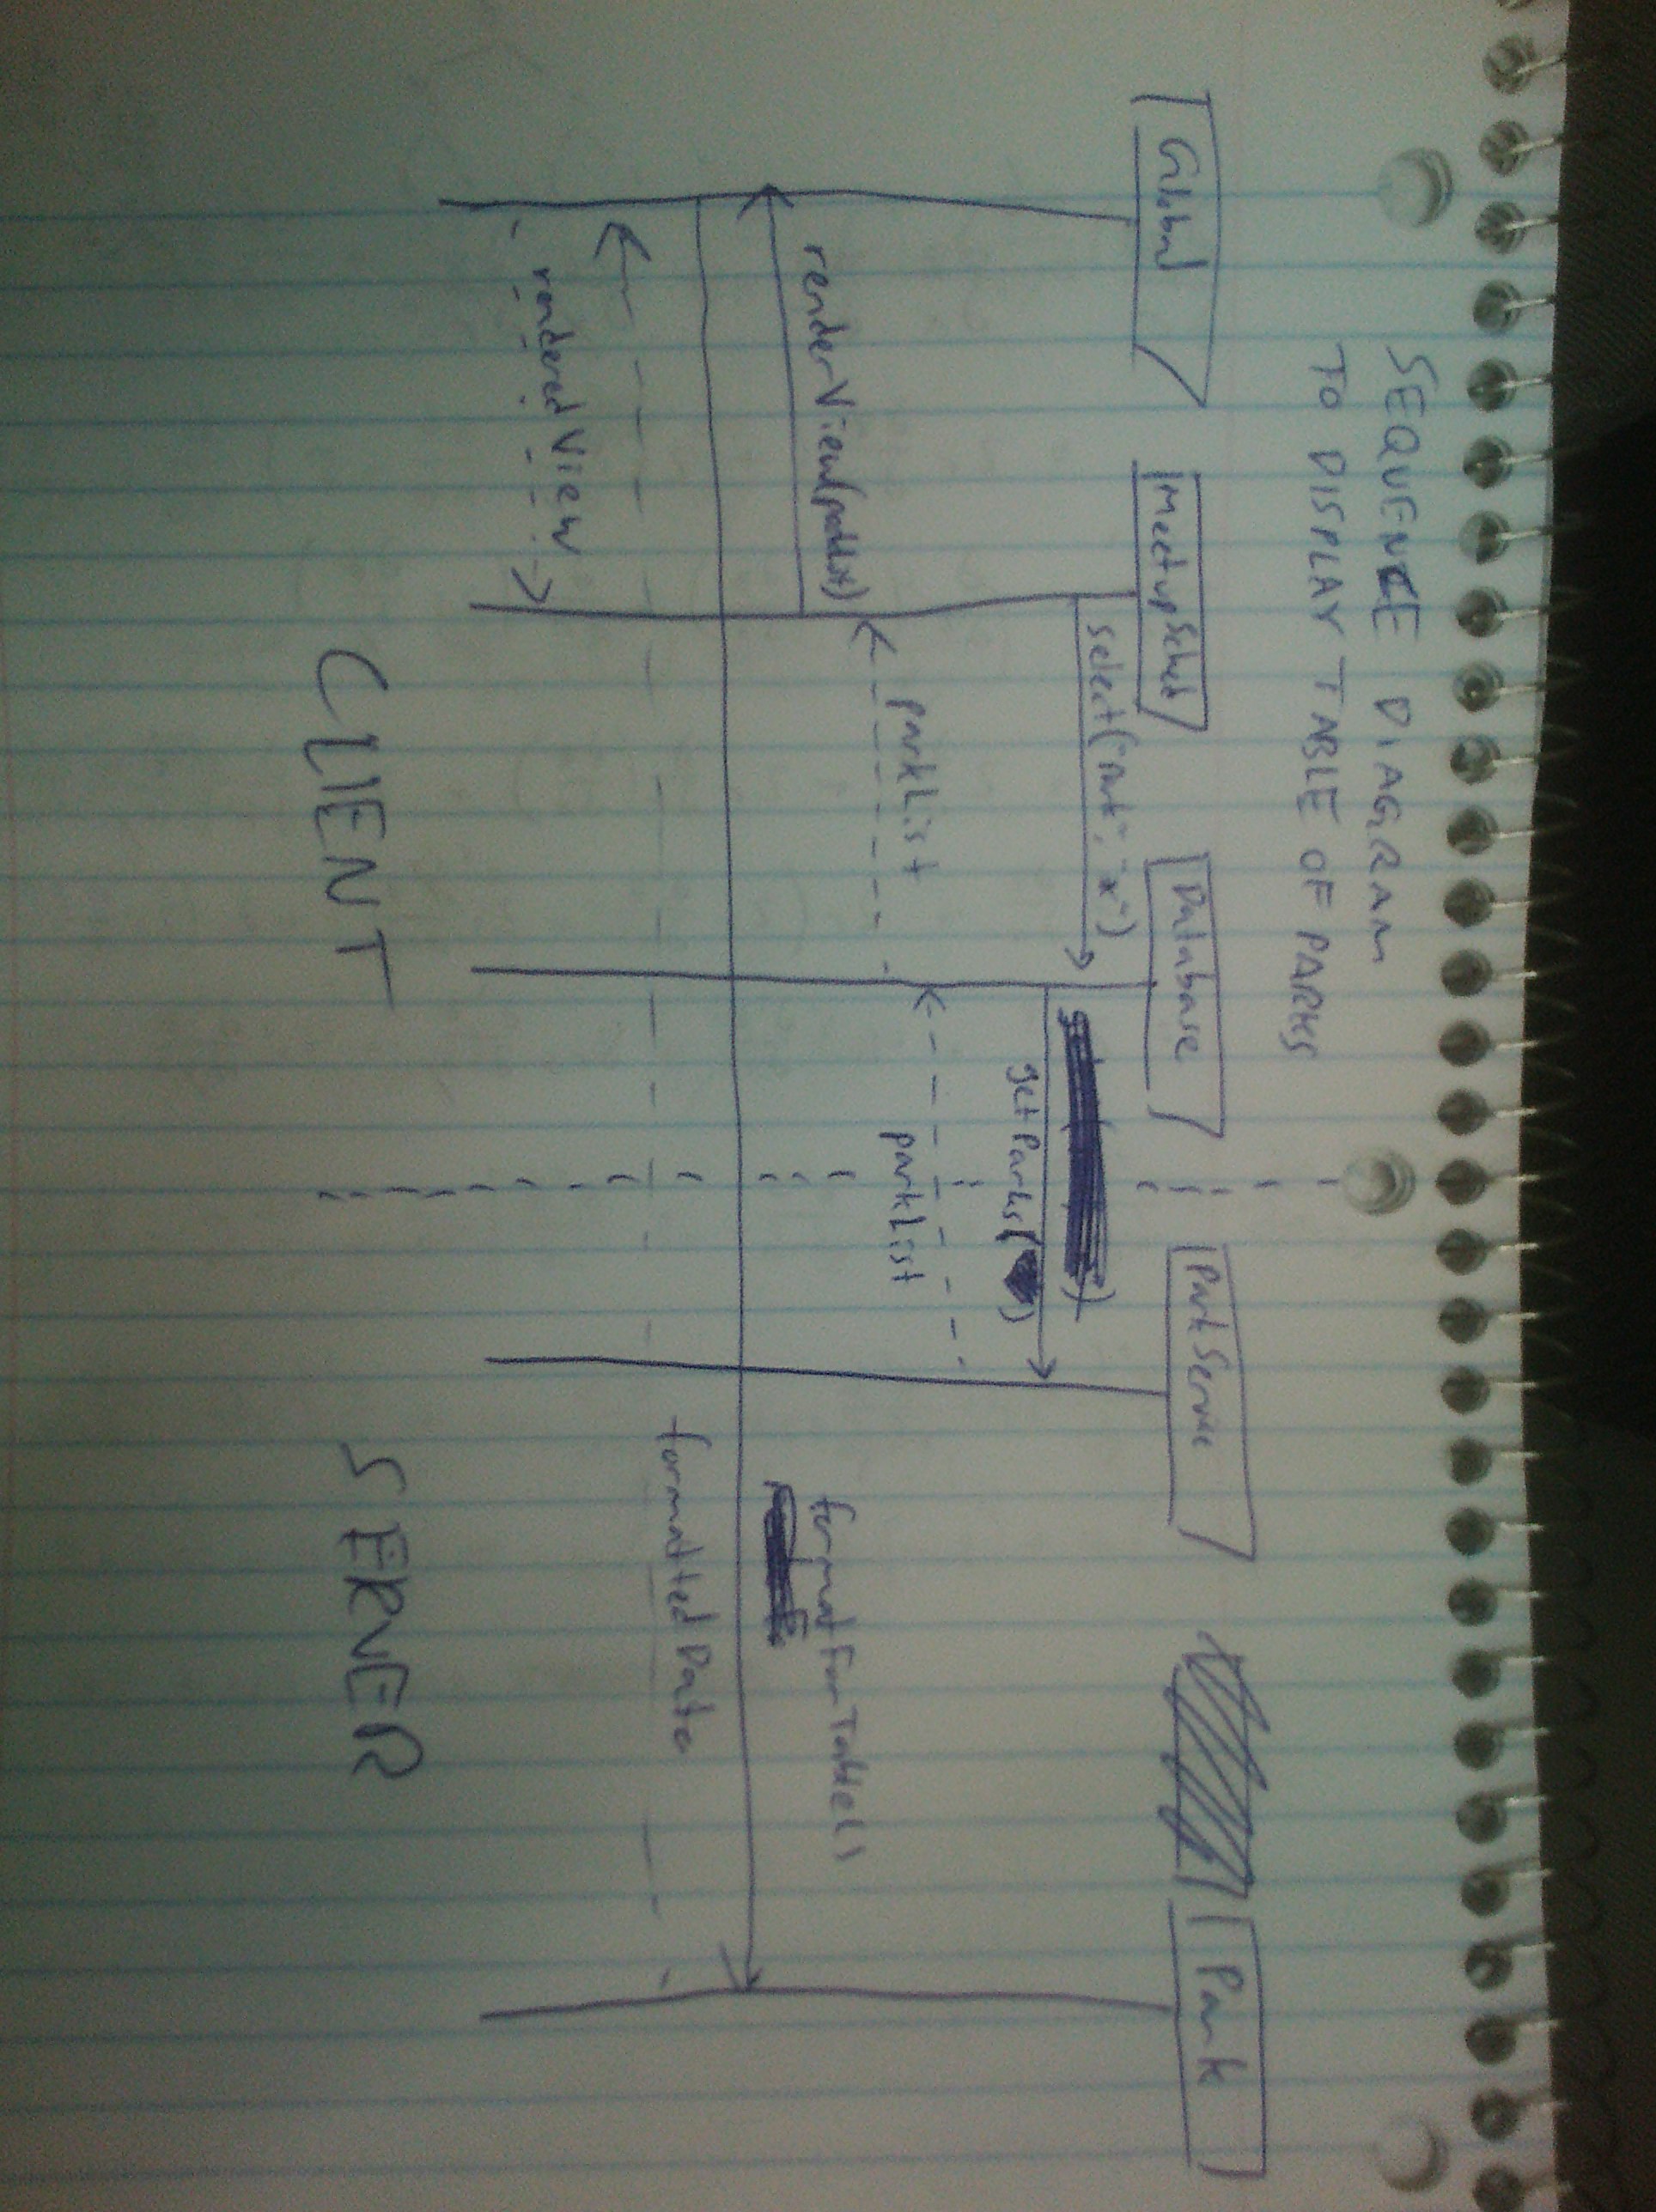 SEQUENCE DIAGRAM
TO DISPLAY TABLE OF PARKS
Global
MeetupSched
Database
Park Service
Park
select("park", "x")
getParks( )
parkList
parkList
renderView( )
formatForTable()
formattedData
renderedView
CLIENT
SERVER